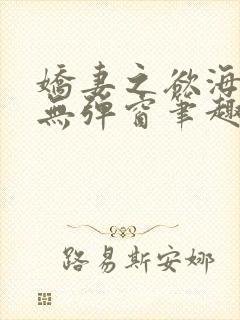 嬌妻之欲海
無彈窗筆趣
路易斯安娜